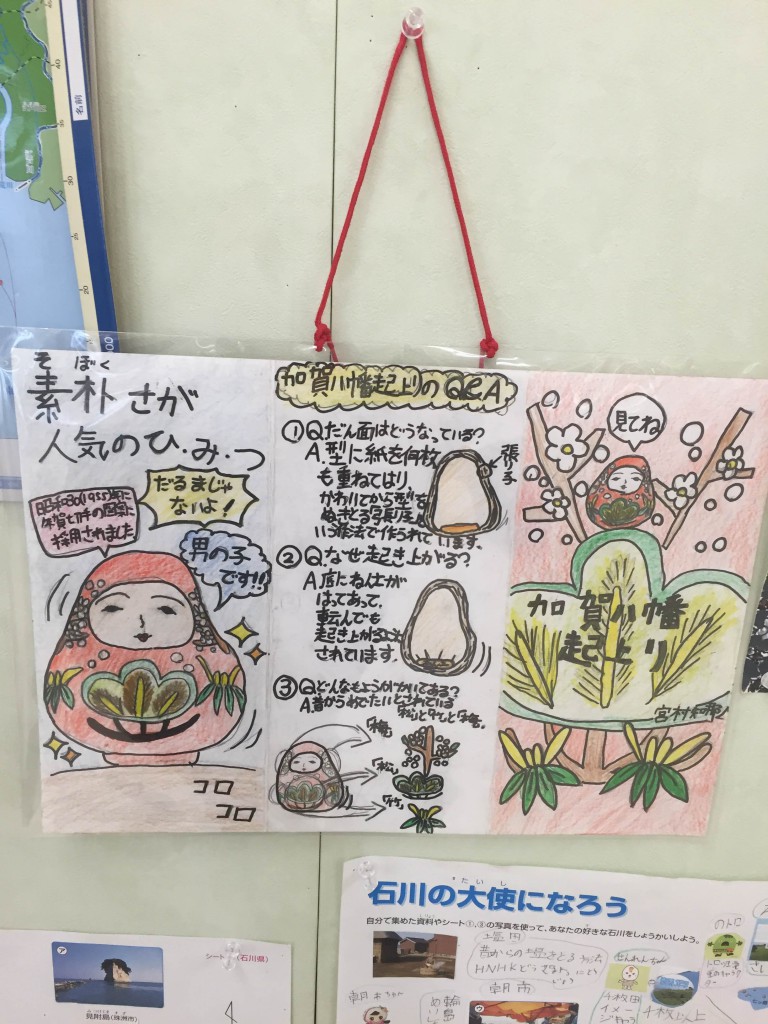 そ ぼく
素朴さが
人気のひ・み・つ
だるまじゃ
ないよ!
昭和30(1955)年に
年賀切手の図案に
採用されました
男の子
です!!
コロ
コロ
加賀八幡起上りのQ&A
①Q.だん面はどうなっている?
A.型に紙を何枚
も重ねてはり、
かわいてから型を
ぬきとる
いう技法で作られています。
張り子
②Q.なぜ起き上がる?
A.底にねん土が
はってあって、
転んでも
起き上がるように
されています。
③Qどんなもようがかいてある?
A.昔からめでたいとされている
「松」と「竹」と「梅」
「梅」
「松」
「竹」
見てね
加賀八幡
起上り
宮村
名前
たいし
石川の大使になろう
自分で集めた資料やシート①、③の写真を使って、あなたの好きな石川をしょうかいしよう。
塩田
昔からの
朝市
輪島
のトロ
千枚田
イメージ
千枚以上
シート(石川県)
ア
見附島(珠洲市)
ウ